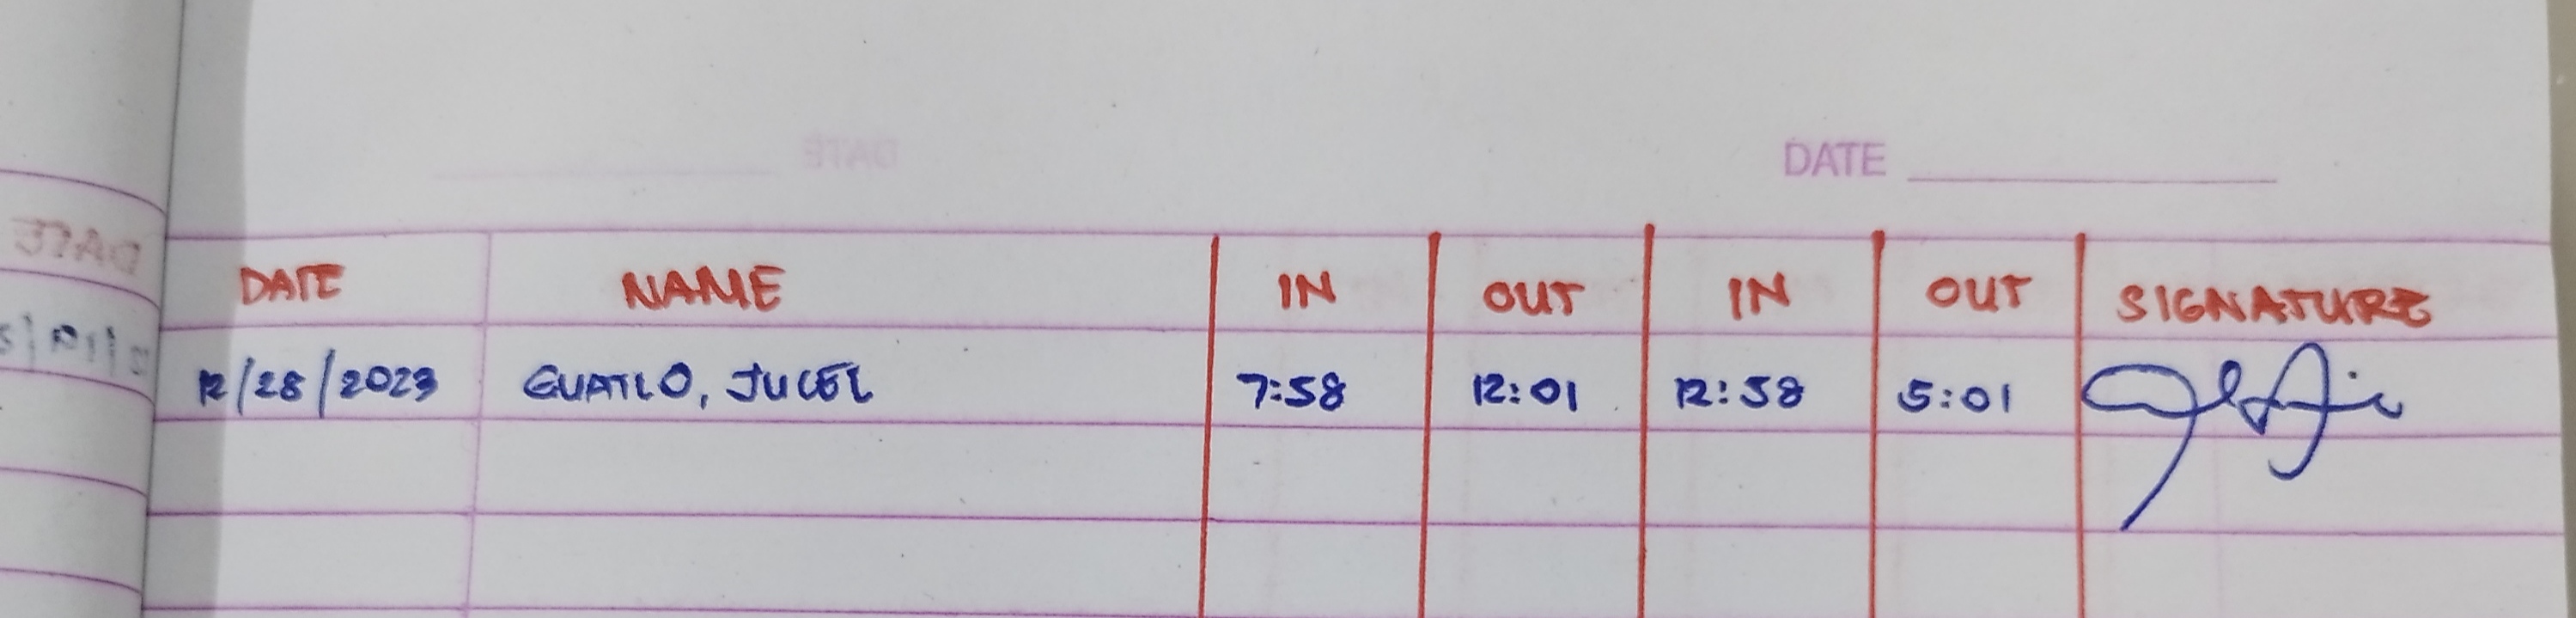 DATE
DATE NAME IN OUT IN OUT SIGNATURE
12/28/2023 GUATLO, JUCEL 7:58 12:01 12:58 5:01